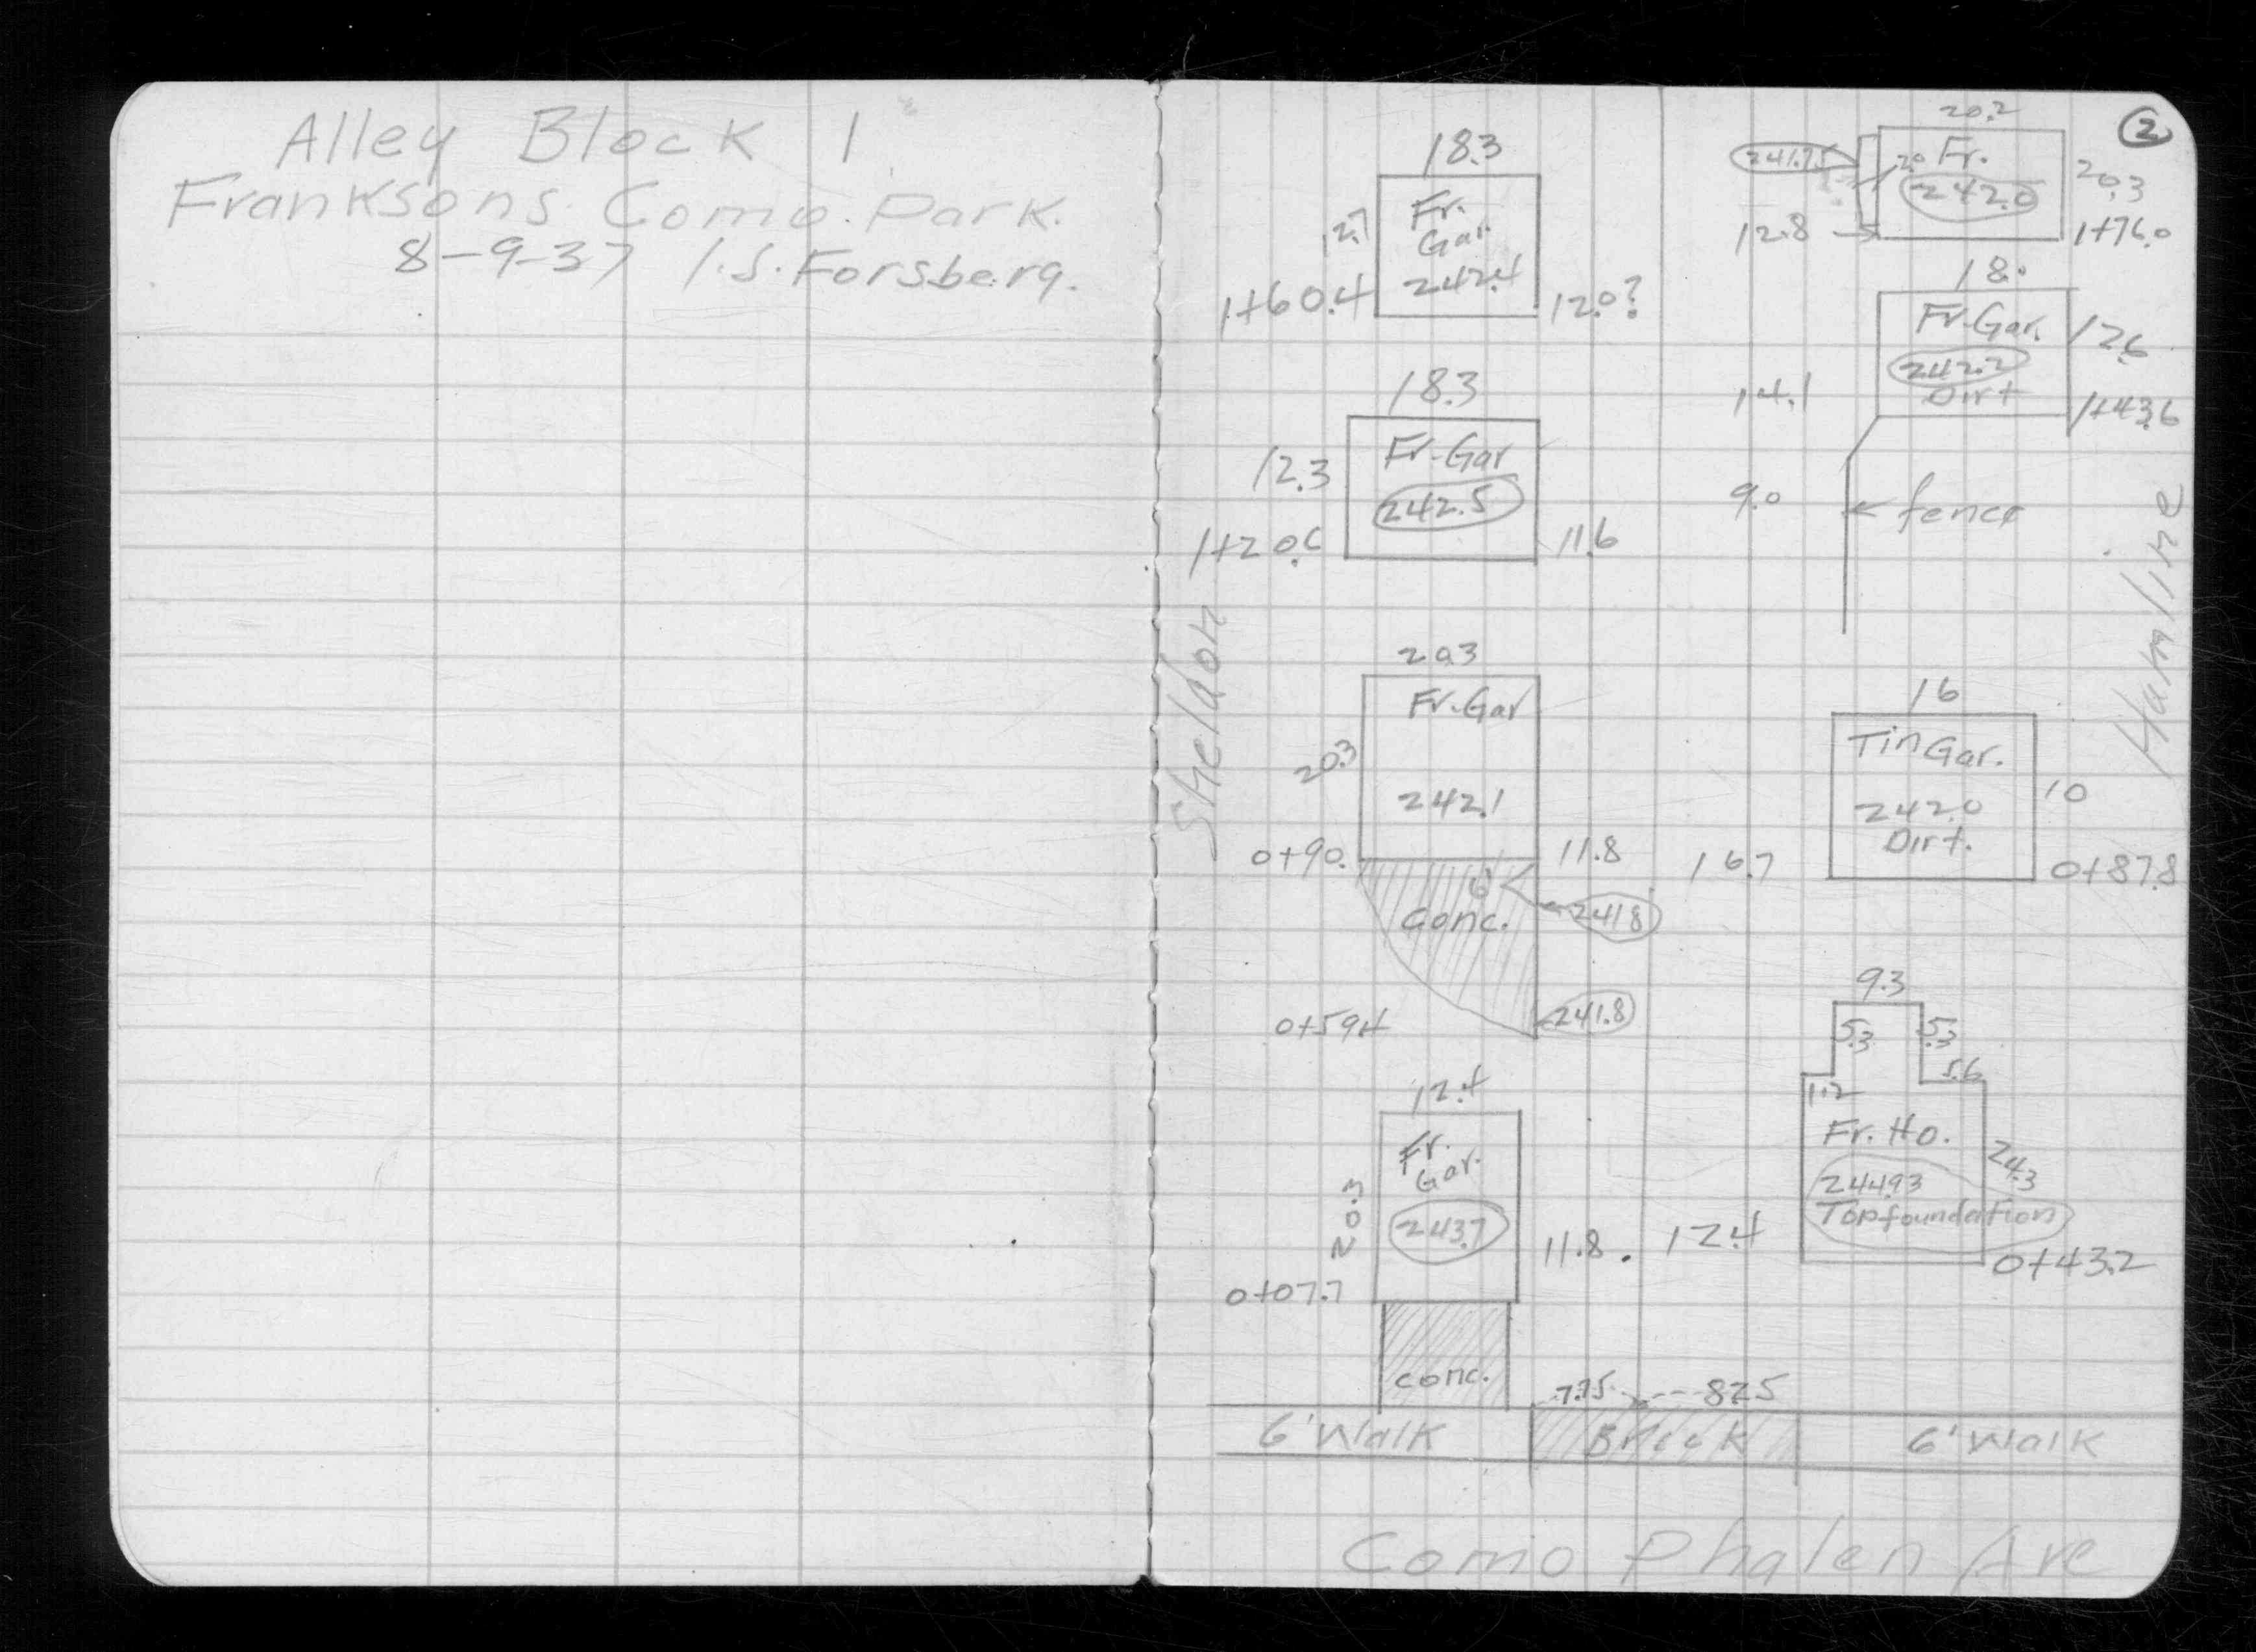 Alley Block 1
Franksons Como Park.
8-9-37 I.S. Forsberg.
2
18.3
Fr.
Gar.
242.4
12.7
1+60.4
12.0?
20.2
241.75
2.0
Fr.
242.0
20.3
12.8
1+76.0
18.
Fr-Gar.
242.2
Dirt
12.6
14.1
1+43.6
18.3
Fr-Gar
242.5
12.3
1+20.6
11.6
9.0
fence
Sheldon
Hamline
20.3
Fr-Gar
242.1
20.3
0+90.
11.8
6'
conc.
241.8
0+59.4
241.8
16
Tin Gar.
242.0
Dirt.
10
16.7
0+87.8
9.3
5.3
5.3
5.6
1.2
Fr. Ho.
244.93
Top foundation
24.3
12.4
0+43.2
12.4
Fr.
Gar.
243.7
20.3
11.8
0+07.7
conc.
7.75
8.25
6' Walk
Brick
6' Walk
Como Phalen Ave